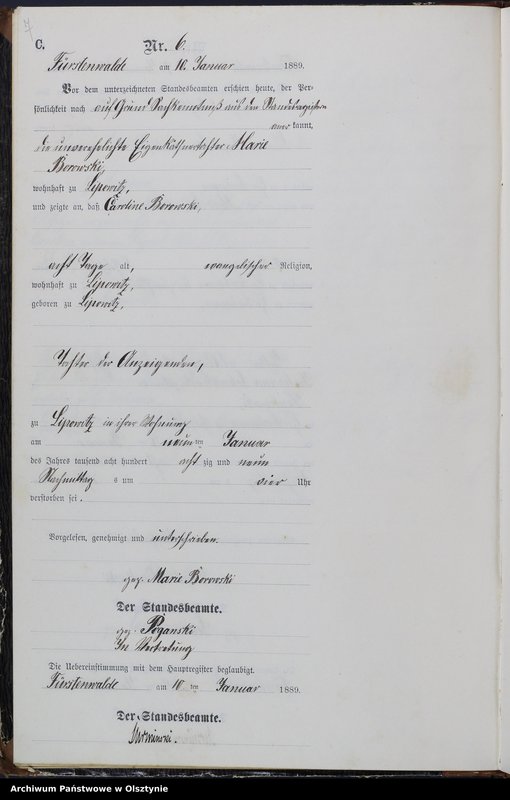 7
C.
Nr. 6.
Fürstenwalde am 10. Januar 1889.
Vor dem unterzeichneten Standesbeamten erschien heute, der Per-
sönlichkeit nach auf Grund Rechkenntniß aus den Standesregistern
aner kannt,
die unverehelichte Eigenkäthnertochter Marie
Borowski,
wohnhaft zu Lipowitz,
und zeigte an, daß Caroline Borowski,
acht Tage alt, evangelischer Religion,
wohnhaft zu Lipowitz,
geboren zu Lipowitz,
Tochter der Anzeigenden,
zu Lipowitz in ihrer Wohnung
am neun ten Januar
des Jahres tausend acht hundert acht zig und neun
Nachmittag s um vier Uhr
verstorben sei.
Vorgelesen, genehmigt und unterschrieben.
gez. Marie Borowski
Der Standesbeamte.
gez. Poganski
In Vertretung
Die Uebereinstimmung mit dem Hauptregister beglaubigt.
Fürstenwalde am 10 ten Januar 1889.
Der Standesbeamte.
Archiwum Państwowe w Olsztynie